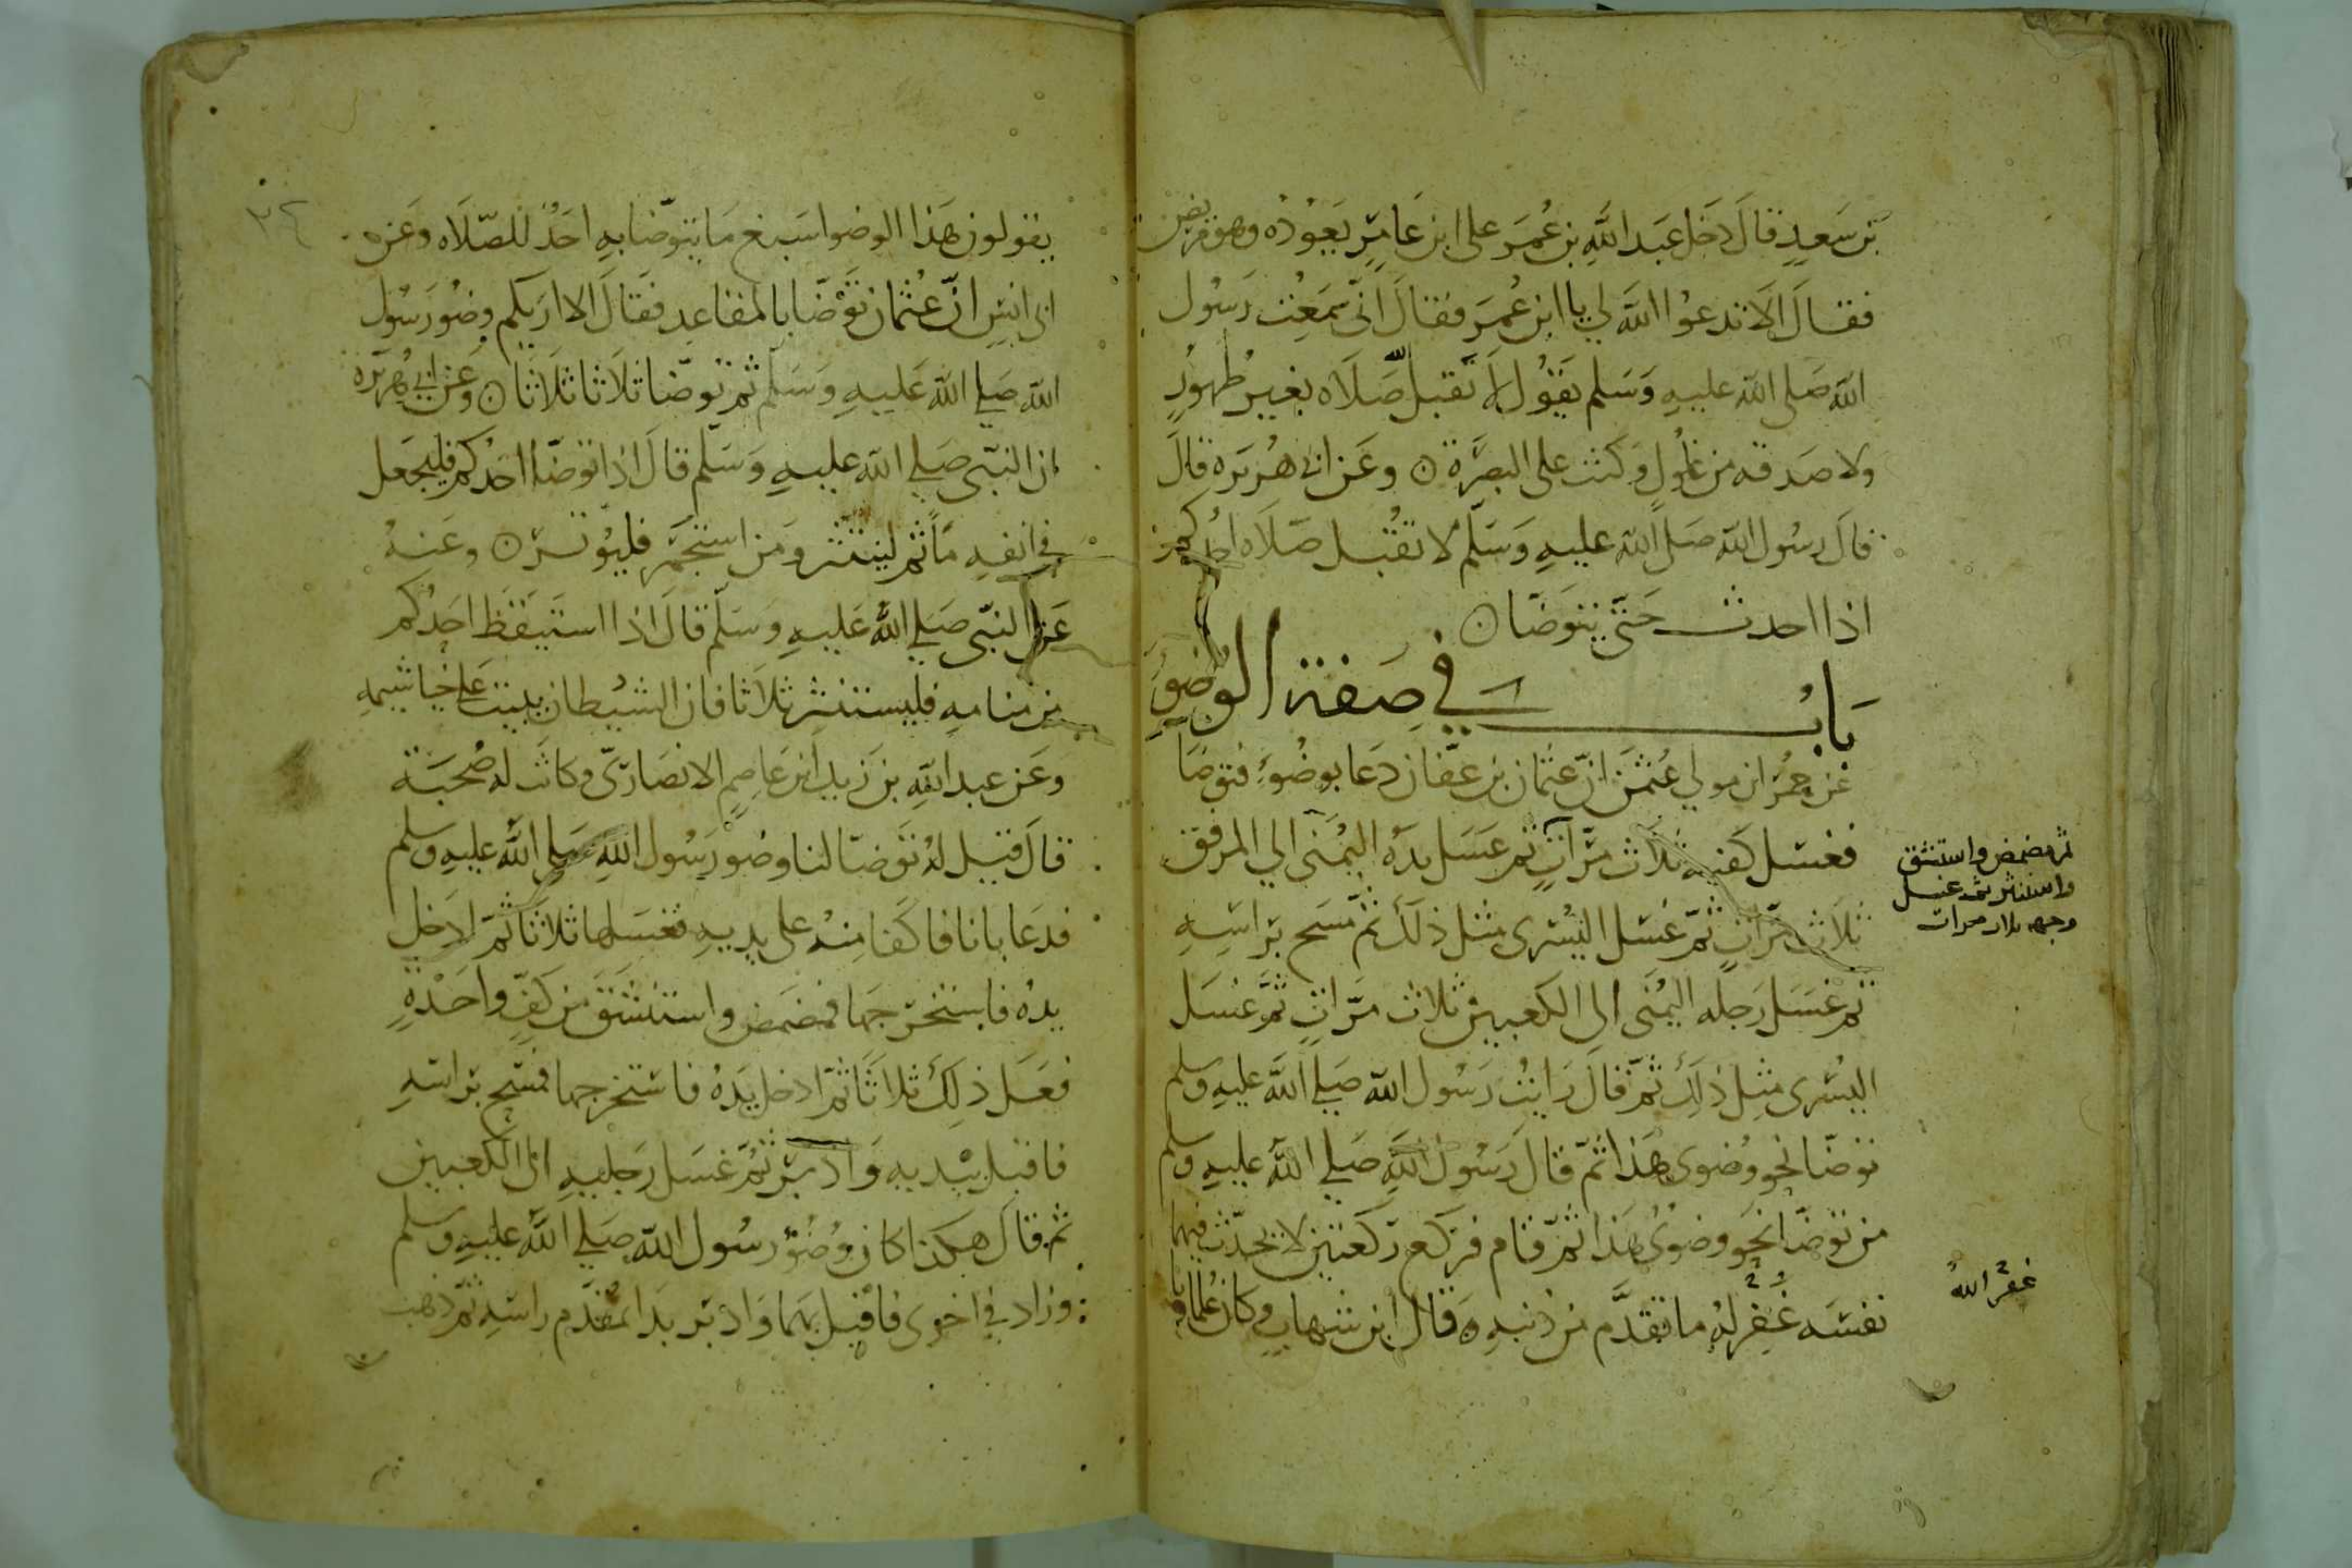 بن سعيد قال دخل عبد الله بن عمر على ابن عامر يعوده وهو مريض
فقال الا تدعوا الله لي يا ابن عمر فقال اني سمعت رسول
الله صلى الله عليه وسلم يقول لا تقبل صلاه بغير طهور
ولا صدقه من غلول وكنت على البصرة ن وعن ابي هريرة قال
قال رسول الله صلى الله عليه وسلم لا تقبل صلاه احدكم
اذا احدث حتى يتوضا ن
باب في صفة الوضوء
عن حمران مولي عثمن ان عثمان بن عفان دعا بوضوء فتوضا
فغسل كفيه ثلاث مرات ثم غسل يده اليمنى الي المرفق
ثلاث مرات ثم غسل اليسرى مثل ذلك ثم مسح براسه
ثم غسل رجله اليمنى الى الكعبين ثلاث مرات ثم غسل
اليسرى مثل ذلك ثم قال رايت رسول الله صلي الله عليه وسلم
توضا نحو وضوى هذا ثم قال رسول الله صلي الله عليه وسلم
من توضا نحو وضوى هذا ثم قام فركع ركعتين لا يحدث فيهما
نفسه غفر له ما تقدم من ذنبه ه قال ابن شهاب وكان علماونا
ثم مضمض واستنشق
واستنثر ثم غسل
وجهه ثلاث مرات
غفر الله
٣٤
يقولون هذا الوضوا اسبغ ما يتوضا به احد للصلاه وعن
ابى انس ان عثمان توضا بالمقاعد فقال الا اريكم وضو رسول
الله صلي الله عليه وسلم ثم توضا ثلاثا ثلاثا ن وعن ابي هريره
ان النبي صلي الله عليه وسلم قال اذا توضا احدكم فليجعل
في انفه ما ثم لينتثر ومن استجمر فليوتر ن وعنه
عن النبي صلي الله عليه وسلم قال اذا استيقظ احدكم
من منامه فليستنثر ثلاثا فان الشيطان يبيت على خياشيمه
وعن عبد الله بن زيد ابن عاصم الانصاري وكانت له صحبة
قال قيل له توضا لنا وضو رسول الله صلي الله عليه وسلم
فدعا بانا فاكفا منه على يديه فغسلها ثلاثا ثم ادخل
يده فاستخرجها فمضمض واستنشق من كف واحدة
فعل ذلك ثلاثا ثم ادخل يده فاستخرجها فمسح براسه
فاقبل بيديه وادبر ثم غسل رجليه الى الكعبين
ثم قال هكذا كان وضو رسول الله صلي الله عليه وسلم
وزاد في اخرى فاقبل بهما وادبر بدا بمقدم راسه ثم ذهب